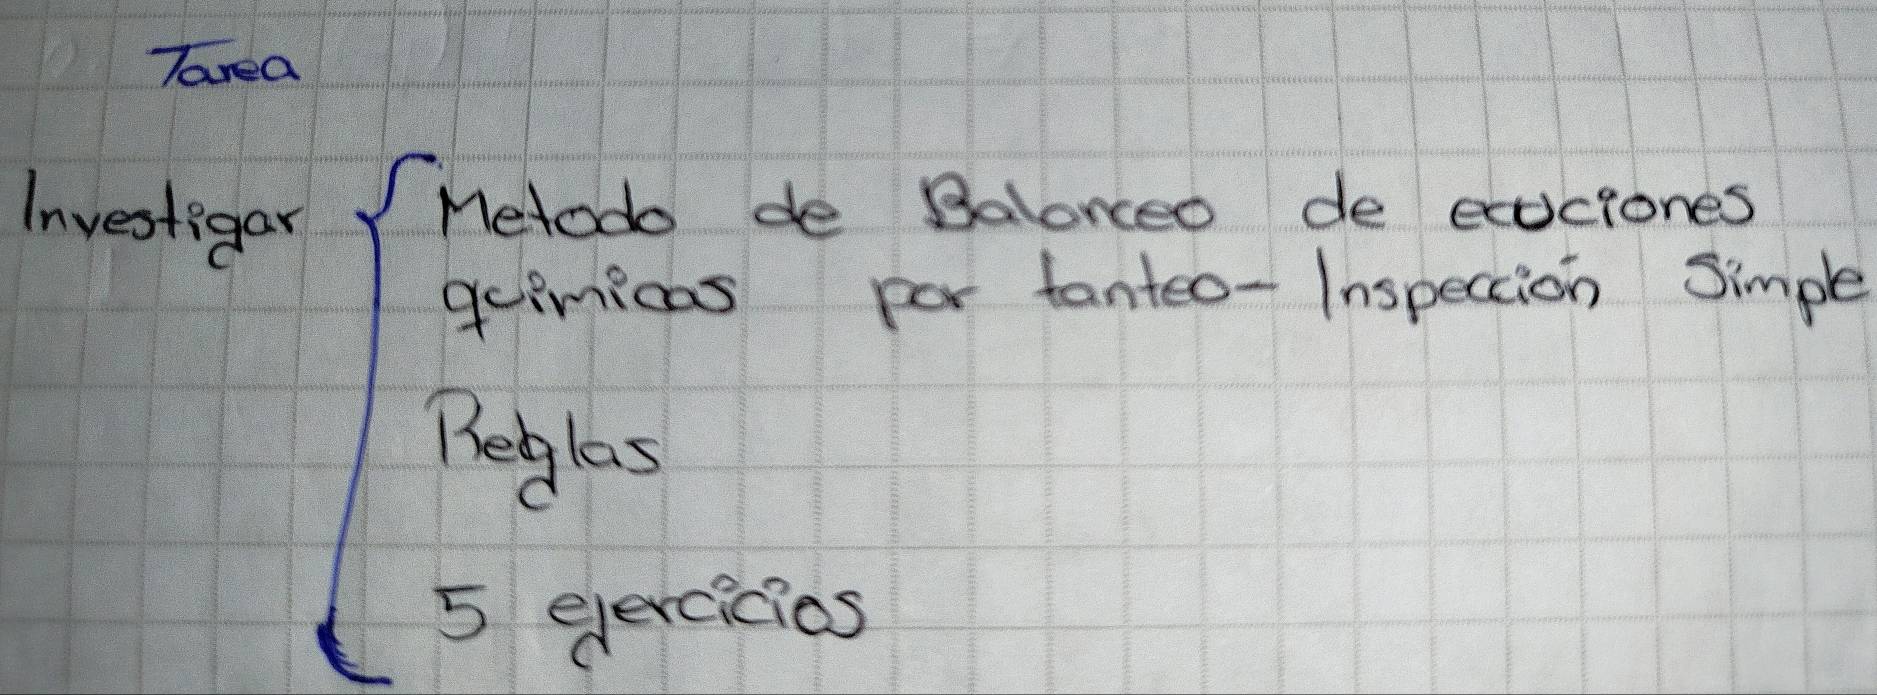 Tarea
Investigar
Metodo de Balanceo de ecuciones
quimicas por tanteo- Inspección Simple
Reglas
5 ejercicios